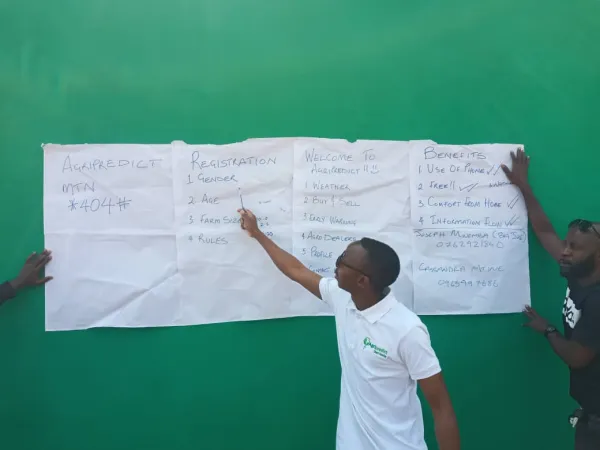 AGRIPREDICT
MTN
*404#
REGISTRATION
1 GENDER
2 AGE
3 FARM SIZE
4 RULES
WELCOME TO
AGRIPREDICT !!
1 WEATHER
2 BUY & SELL
3 EARLY WARNING
4 AGRO DEALERS
5 PROFILE
BENEFITS
1 USE OF PHONE ✓
2 FREE!! ✓
3 COMFORT FROM HOME ✓
4 INFORMATION FLOW ✓
JOSEPH
CASSANDRA